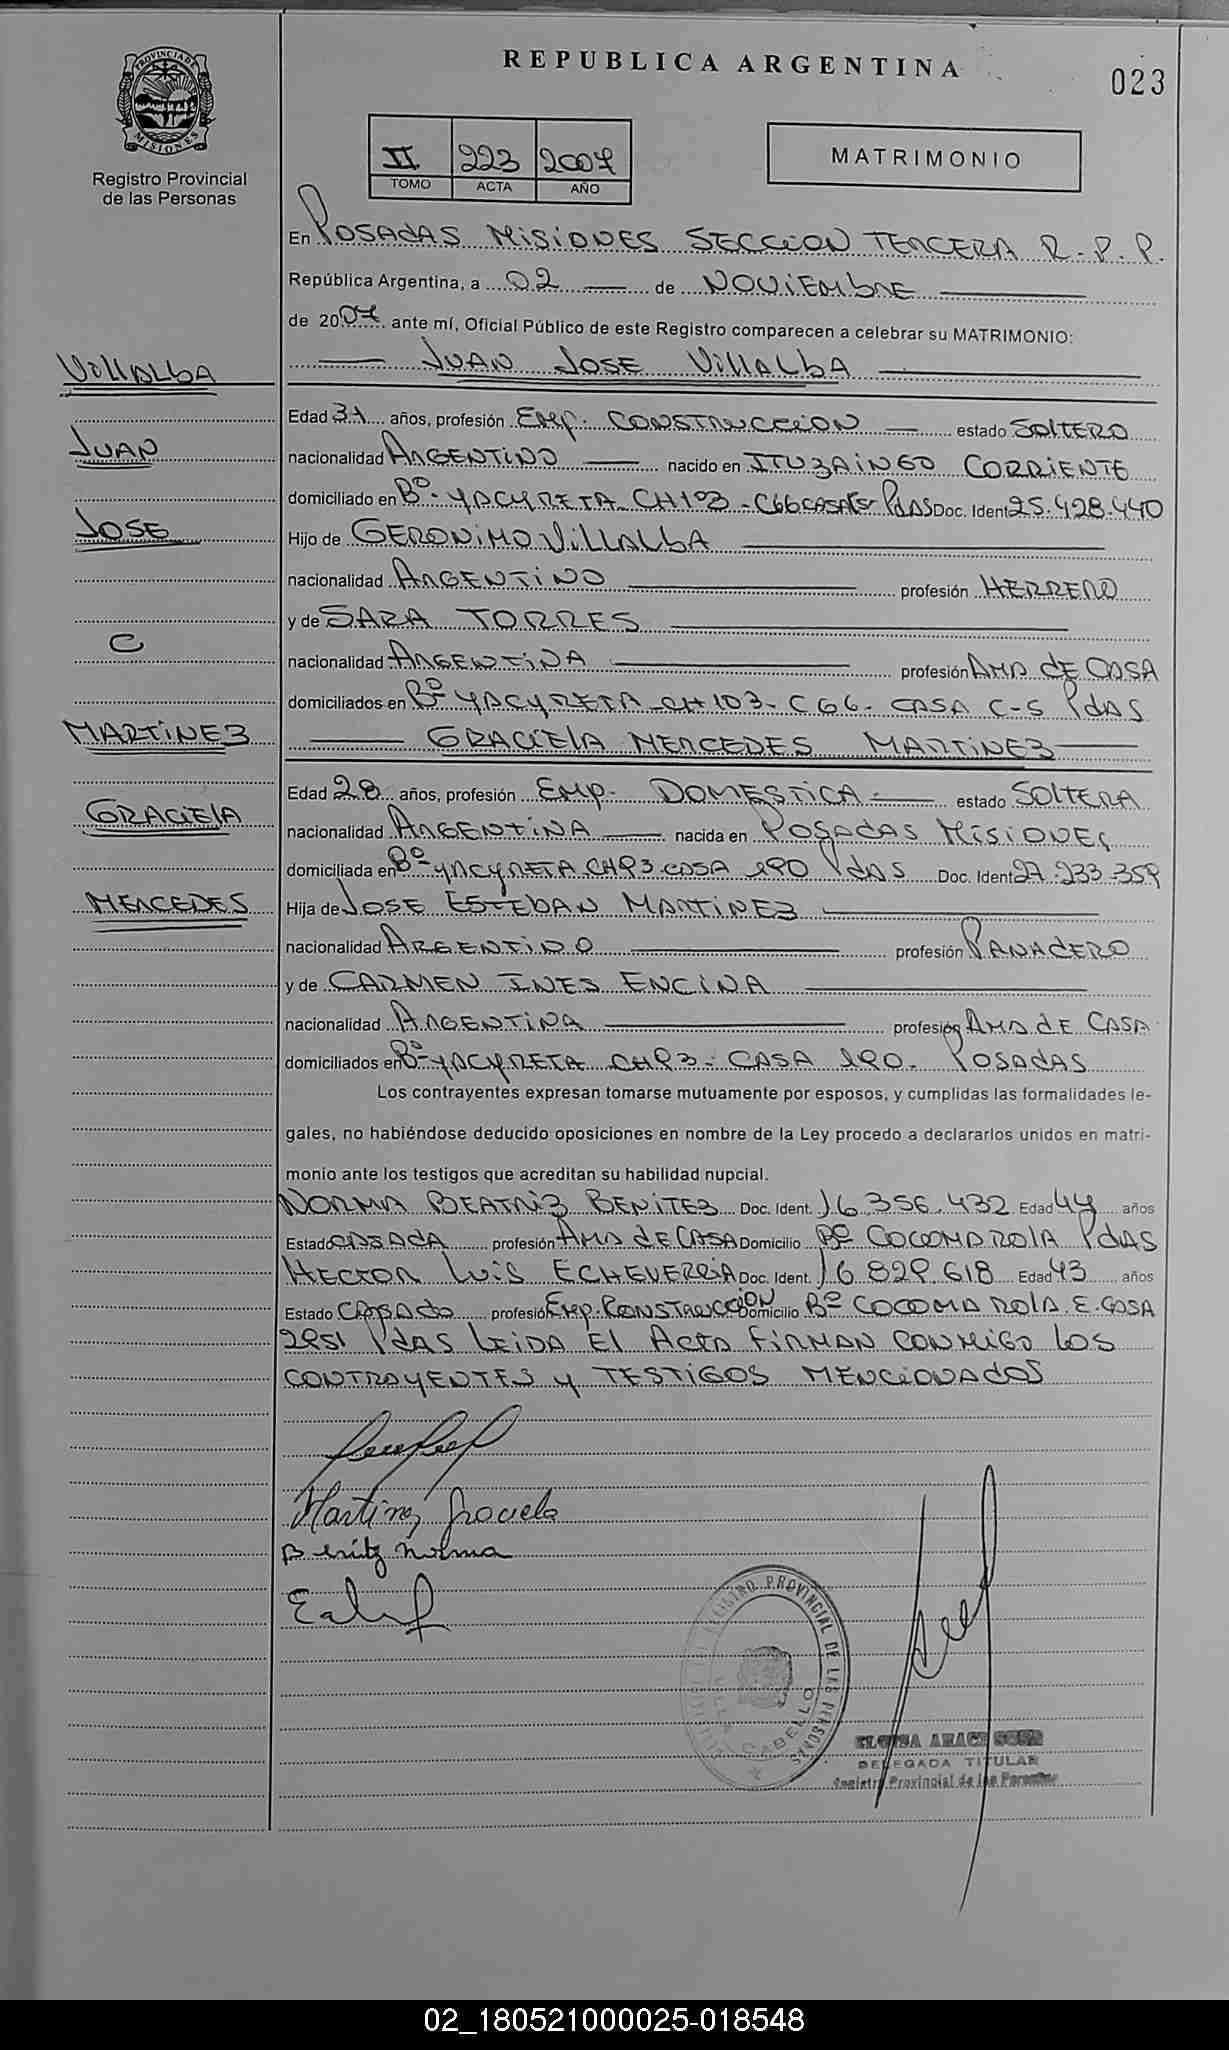 REPUBLICA ARGENTINA
023
PROVINCIA DE
MISIONES
Registro Provincial
de las Personas
II 223 2007
TOMO ACTA AÑO
MATRIMONIO
En POSADAS MISIONES SECCION TERCERA R.P.P.
República Argentina, a 02 de NOVIEMBRE
de 2007 ante mí, Oficial Público de este Registro comparecen a celebrar su MATRIMONIO:
JUAN JOSE VILLALBA
VILLALBA
JUAN
JOSE
C
MARTINEZ
GRACIELA
MERCEDES
Edad 31 años, profesión EMP. CONSTRUCCION estado SOLTERO
nacionalidad ARGENTINO nacido en ITUZAINGO CORRIENTE
domiciliado en Bº YACYRETA CH 103 - C66 CASA PdAS Doc. Ident 25.428.440
Hijo de GERONIMO VILLALBA
nacionalidad ARGENTINO profesión HERRERO
y de SARA TORRES
nacionalidad ARGENTINA profesión AMA dE CASA
domiciliados en Bº YACYRETA CH 103 - C 66 - CASA C-5 PdAS
GRACIELA MERCEDES MARTINEZ
Edad 28 años, profesión EMP. DOMESTICA estado SOLTERA
nacionalidad ARGENTINA nacida en POSADAS MISIONES
domiciliada en Bº YACYRETA CH 93 CASA 190 PdAS Doc. Ident 27.233.359
Hija de JOSE ESTEBAN MARTINEZ
nacionalidad ARGENTINO profesión PANADERO
y de CARMEN INES ENCINA
nacionalidad ARGENTINA profesión AMA dE CASA
domiciliados en Bº YACYRETA CH 93 - CASA 190 - POSADAS
Los contrayentes expresan tomarse mutuamente por esposos, y cumplidas las formalidades le-
gales, no habiéndose deducido oposiciones en nombre de la Ley procedo a declararlos unidos en matri-
monio ante los testigos que acreditan su habilidad nupcial.
NORMA BEATRIZ BENITEZ Doc. Ident. 16.356.432 Edad 44 años
Estado CASADA profesión AMA dE CASA Domicilio Bº COCOMAROLA PdAS
HECTOR LUIS ECHEVERRIA Doc. Ident. 16 829.618 Edad 43 años
Estado CASADO profesión EMP. CONSTRUCCION Domicilio Bº COCOMAROLA E. CASA
2951 PdAS LEIDA EL ACTA FIRMAN CONMIGO LOS
CONTRAYENTES Y TESTIGOS MENCIONADOS
Martinez Graciela
Benitez Norma
REGISTRO PROVINCIAL DE LAS PERSONAS
VILLA CABELLO
DELEGADA TITULAR
Registro Provincial de las Personas
02_180521000025-018548